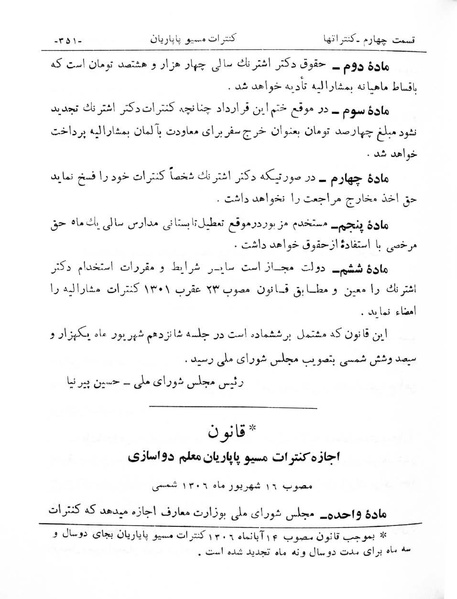 قسمت چهارم ـ کنتراتها کنترات مسیو پاپاریان ـ۳۵۱ـ
مادهٔ دوم ـ حقوق دکتر اشترنك سالی چهار هزار و هشتصد تومان است که
باقساط ماهیانه بمشارالیه تأدیه خواهد شد .
مادهٔ سوم ـ در موقع ختم این قرارداد چنانچه کنترات دکتر اشترنك تجدید
نشود مبلغ چهارصد تومان بعنوان خرج سفر برای معاودت بآلمان بمشارالیه پرداخت
خواهد شد .
مادهٔ چهارم ـ در صورتیکه دکتر اشترنك شخصاً کنترات خود را فسخ نماید
حق اخذ مخارج مراجعت را نخواهد داشت .
مادهٔ پنجم ـ مستخدم مزبور در موقع تعطیل تابستانی مدارس سالی یك ماه حق
مرخصی با استفادهٔ از حقوق خواهد داشت .
مادهٔ ششم ـ دولت مجاز است سایر شرایط و مقررات استخدام دکتر
اشترنك را معین و مطابق قانون مصوب ۲۳ عقرب ۱۳۰۱ کنترات مشارالیه را
امضاء نماید .
این قانون که مشتمل برشش‌ماده است در جلسه شانزدهم شهریور ماه یکهزار و
سیصد وشش شمسی بتصویب مجلس شورای ملی رسید .
رئیس مجلس شورای ملی ـ حسین پیرنیا
* قانون
اجازه کنترات مسیو پاپاریان معلم دواسازی
مصوب ۱۶ شهریور ماه ۱۳۰۶ شمسی
مادهٔ واحده ـ مجلس شورای ملی بوزارت معارف اجازه میدهد که کنترات
* بموجب قانون مصوب ۱۴ آبانماه ۱۳۰۶ کنترات مسیو پاپاریان بجای دوسال و
سه ماه برای مدت دوسال ونه ماه تجدید شده است .